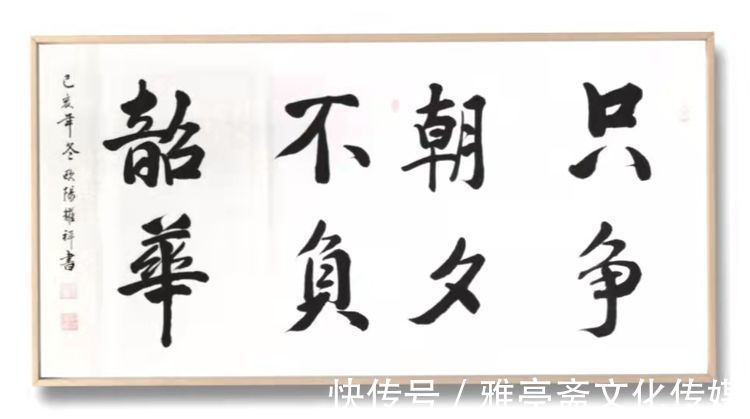 只争
朝夕
不負
韶華
己亥年冬欧陽祥書
快传号 / 雅亭斋文化传媒